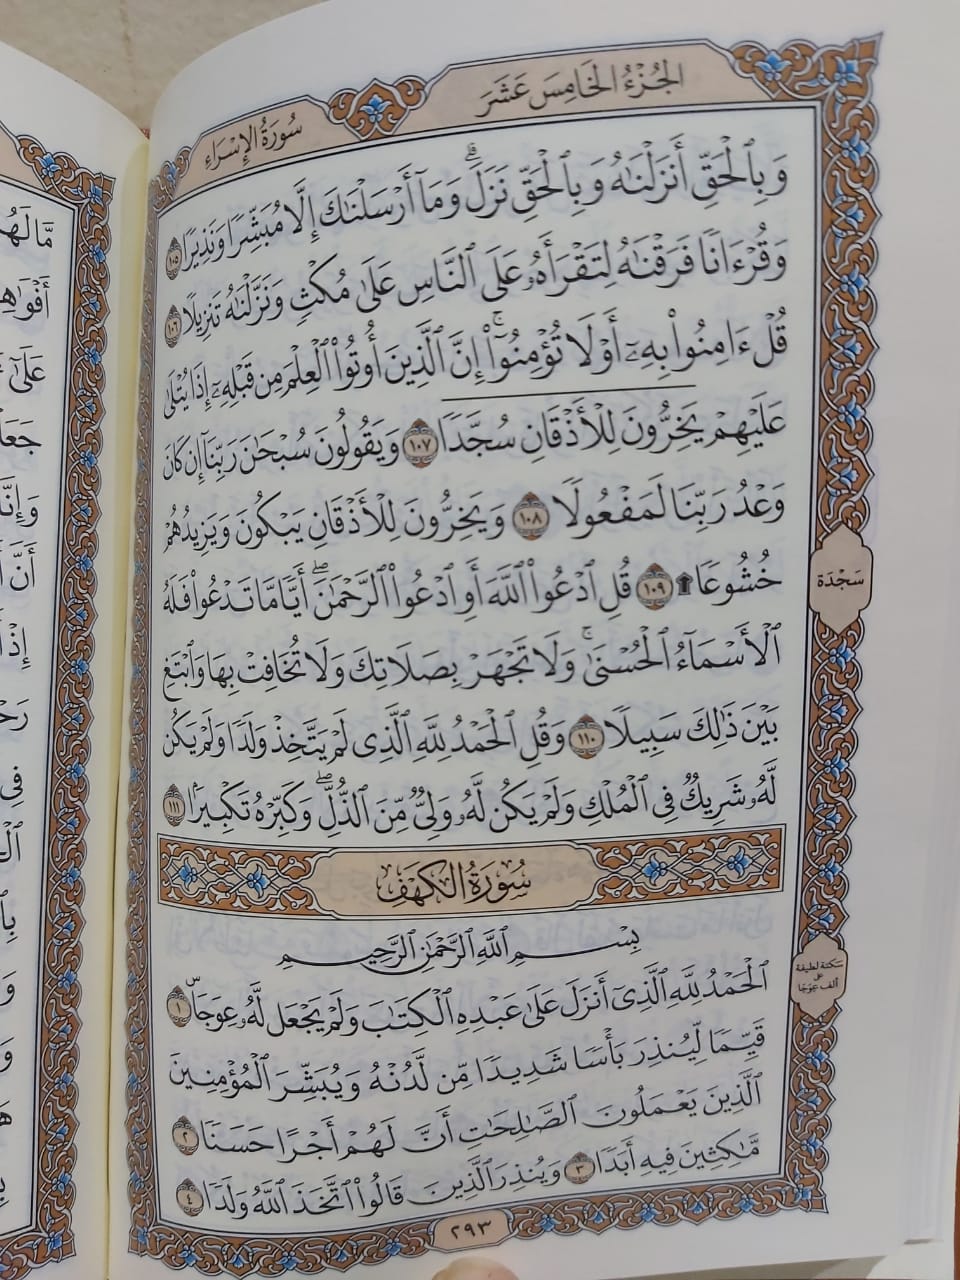 الجُزْءُ الخَامِسَ عَشَرَ
سُورَةُ الإِسْرَاءِ
وَبِٱلْحَقِّ أَنزَلْنَٰهُ وَبِٱلْحَقِّ نَزَلَۗ وَمَآ أَرْسَلْنَٰكَ إِلَّا مُبَشِّرًا وَنَذِيرًا ١٠٥
وَقُرْءَانًا فَرَقْنَٰهُ لِتَقْرَأَهُۥ عَلَى ٱلنَّاسِ عَلَىٰ مُكْثٍ وَنَزَّلْنَٰهُ تَنزِيلًا ١٠٦
قُلْ ءَامِنُوا۟ بِهِۦٓ أَوْ لَا تُؤْمِنُوٓا۟ۚ إِنَّ ٱلَّذِينَ أُوتُوا۟ ٱلْعِلْمَ مِن قَبْلِهِۦٓ إِذَا يُتْلَىٰ
عَلَيْهِمْ يَخِرُّونَ لِلْأَذْقَانِ سُجَّدًا ١٠٧ وَيَقُولُونَ سُبْحَٰنَ رَبِّنَآ إِن كَانَ
وَعْدُ رَبِّنَا لَمَفْعُولًا ١٠٨ وَيَخِرُّونَ لِلْأَذْقَانِ يَبْكُونَ وَيَزِيدُهُمْ
خُشُوعًا۩ ١٠٩ قُلِ ٱدْعُوا۟ ٱللَّهَ أَوِ ٱدْعُوا۟ ٱلرَّحْمَٰنَۖ أَيًّا مَّا تَدْعُوا۟ فَلَهُ
ٱلْأَسْمَآءُ ٱلْحُسْنَىٰۚ وَلَا تَجْهَرْ بِصَلَاتِكَ وَلَا تُخَافِتْ بِهَا وَٱبْتَغِ
بَيْنَ ذَٰلِكَ سَبِيلًا ١١٠ وَقُلِ ٱلْحَمْدُ لِلَّهِ ٱلَّذِى لَمْ يَتَّخِذْ وَلَدًا وَلَمْ يَكُن
لَّهُۥ شَرِيكٌ فِى ٱلْمُلْكِ وَلَمْ يَكُن لَّهُۥ وَلِىٌّ مِّنَ ٱلذُّلِّۖ وَكَبِّرْهُ تَكْبِيرًۢا ١١١
سُورَةُ الكَهْفِ
بِسْمِ ٱللَّهِ ٱلرَّحْمَٰنِ ٱلرَّحِيمِ
ٱلْحَمْدُ لِلَّهِ ٱلَّذِىٓ أَنزَلَ عَلَىٰ عَبْدِهِ ٱلْكِتَٰبَ وَلَمْ يَجْعَل لَّهُۥ عِوَجَاۜ ١
قَيِّمًا لِّيُنذِرَ بَأْسًا شَدِيدًا مِّن لَّدُنْهُ وَيُبَشِّرَ ٱلْمُؤْمِنِينَ
ٱلَّذِينَ يَعْمَلُونَ ٱلصَّٰلِحَٰتِ أَنَّ لَهُمْ أَجْرًا حَسَنًا ٢
مَّٰكِثِينَ فِيهِ أَبَدًا ٣ وَيُنذِرَ ٱلَّذِينَ قَالُوا۟ ٱتَّخَذَ ٱللَّهُ وَلَدًا ٤
٢٩٣
سَجْدَة
سكتة لطيفة
على
ألف عِوَجَا
مَّا لَهُ
عَلَىٰٓ
وَإِنَّا
فِى